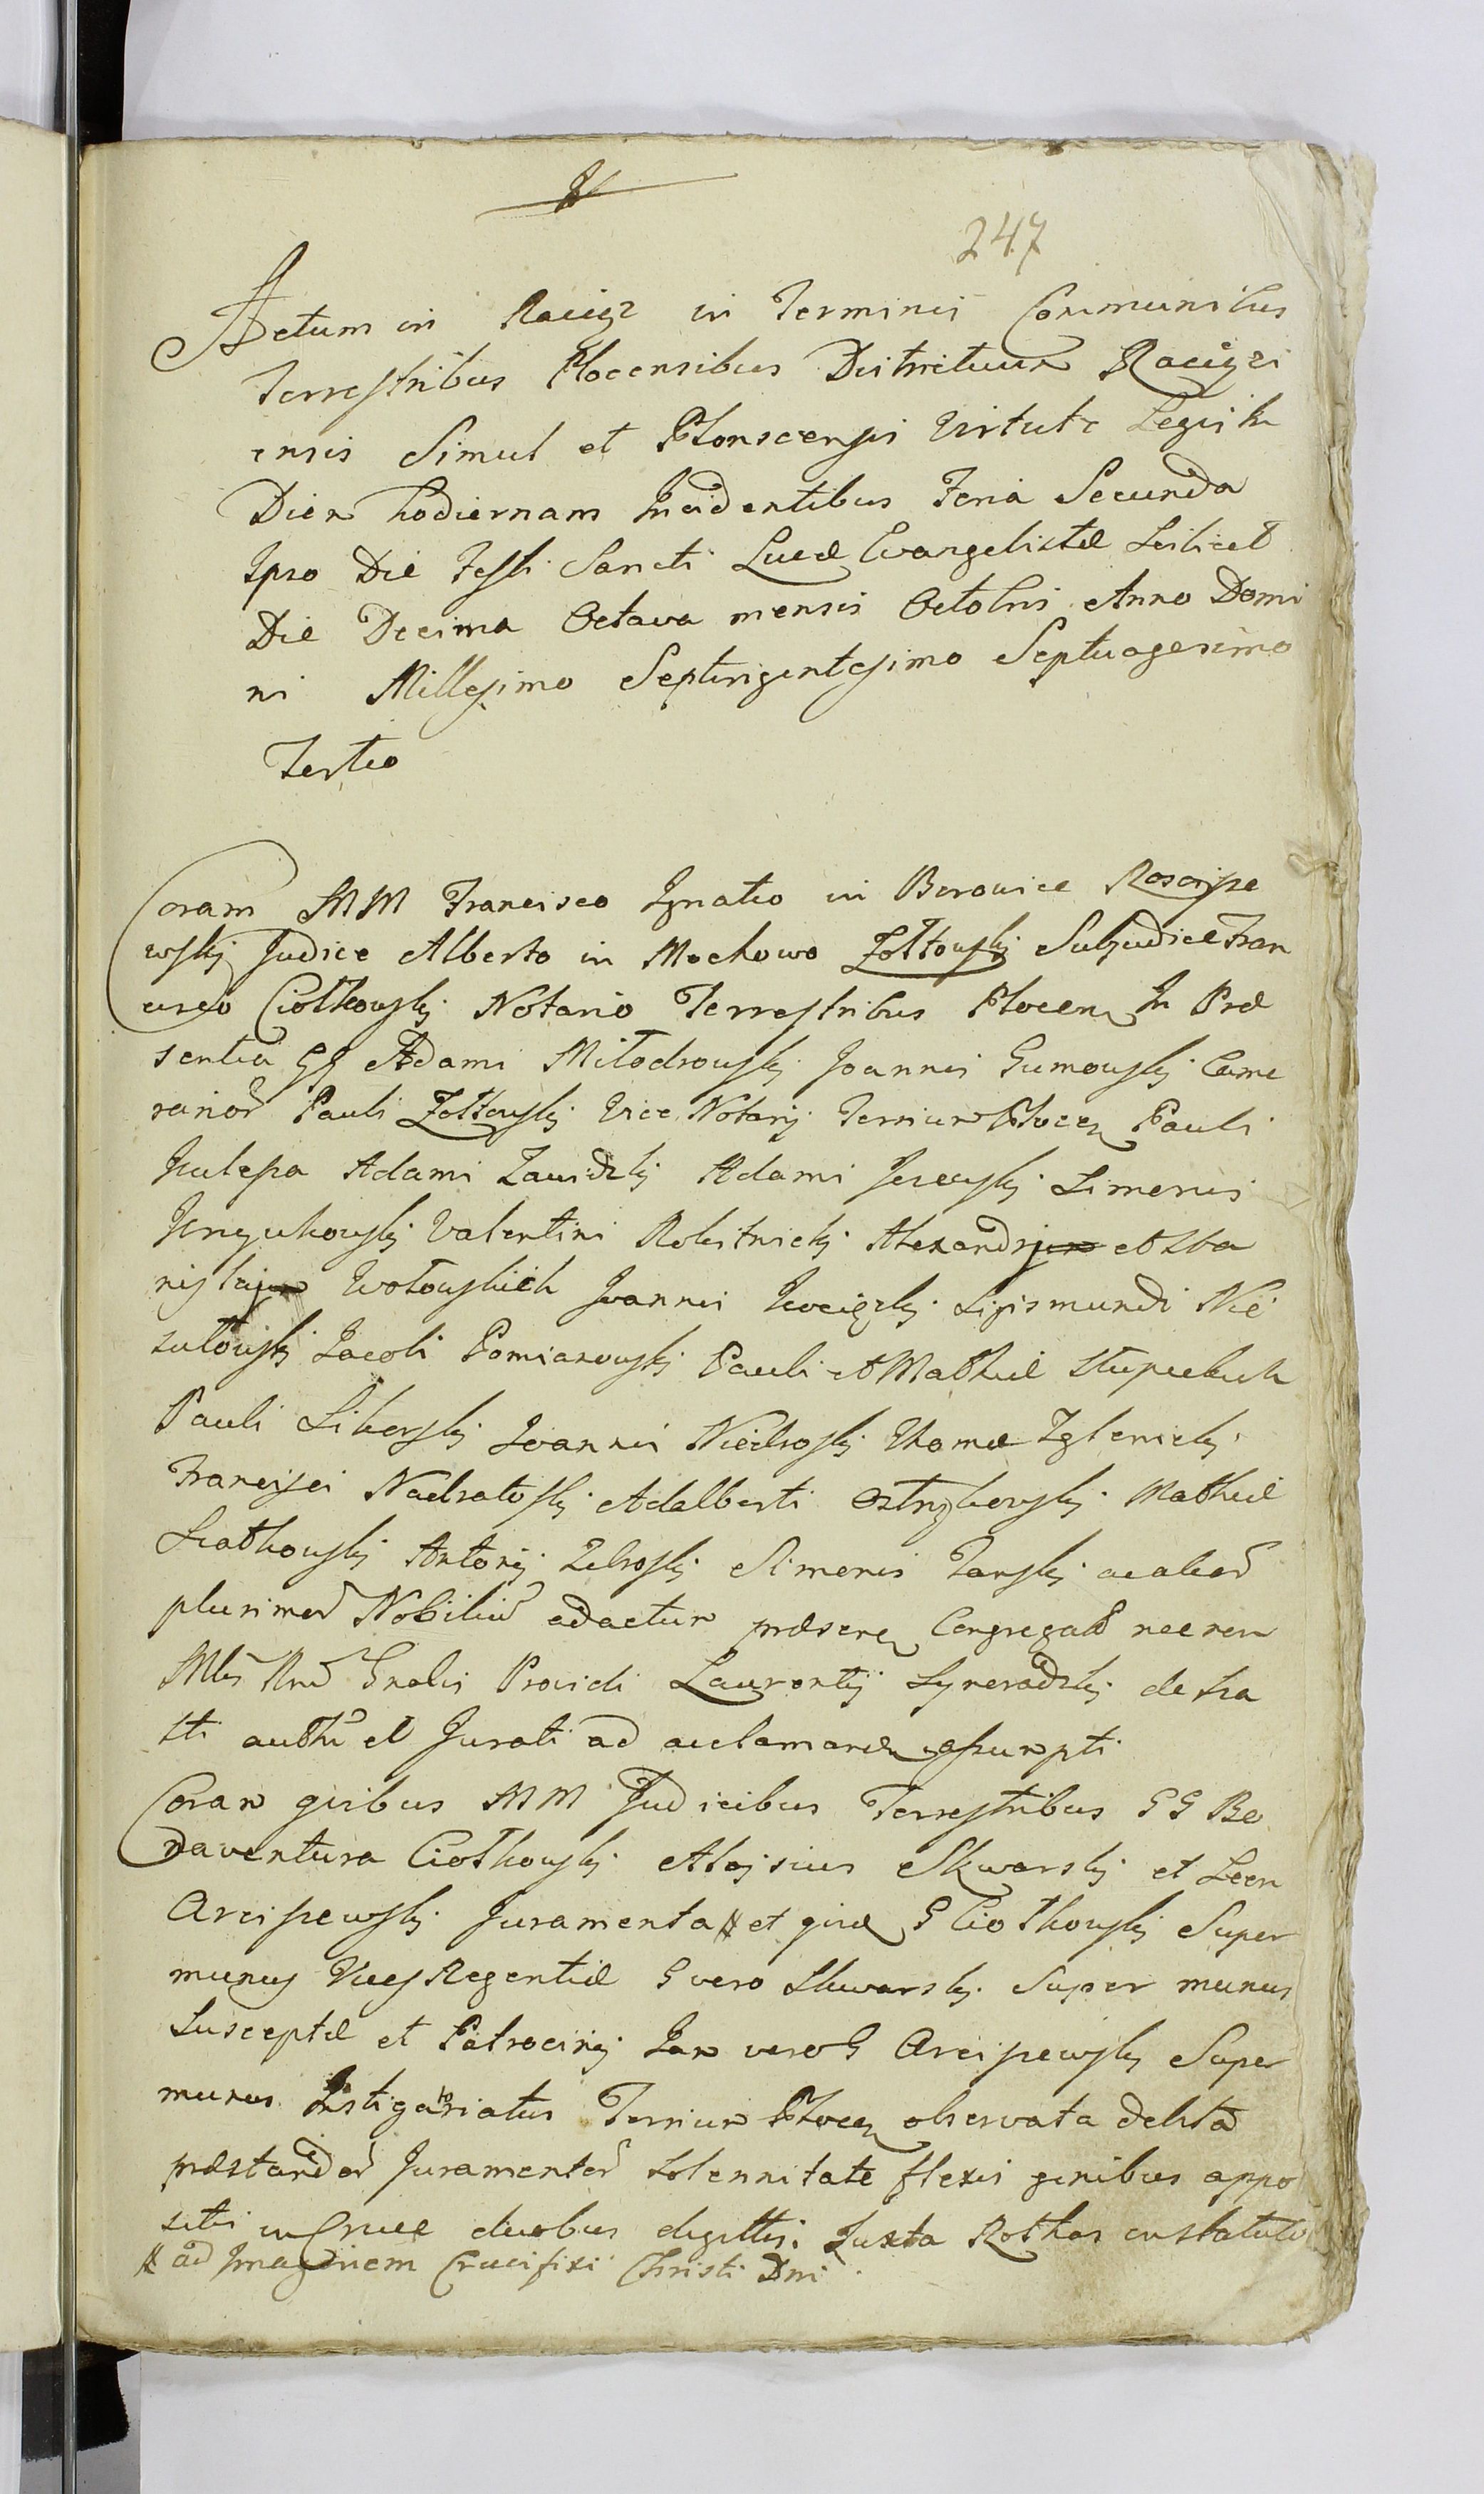 247
Actum in Raciąz in Terminis Communibus
Terrestribus Plocensibus Districtuum Raciązi
ensis Simul et Plonscensis Virtute Legis in
Diem hodiernam Incidentibus Feria Secunda
Ipso Die Festi Sancti Lucæ Evangelistæ Scilicet
Die Decima Octava mensis Octobris Anno Domi
ni Millesimo Septingentesimo Septuagesimo
Tertio
Coram MM Francisco Ignatio in Borowice Roscisze
wski Judice Alberto in Mochowo Zołtowski Subjudice Fran
cisco Ciołkowski Notario Terrestribus Plocen In Præ
sentia GG Adami Miłodrowski Joannis Gumowski Came
rarior Pauli Zołtowski Vice Notarij Terrium Plocen Pauli
Adami Zawidzki Adami Jerewski Simenis
Valentini Robitnicki Alexandri et Sta
nislai Wołowskich Joannis Sigismundi Nie
sułowski Jacobi Pomianowski Pauli et Mathiæ Słupeckich
Pauli Liberski Joannis Niedroski Thomæ Zglenicki
Francisci Nadratoski Adalberti Ostrzykowski Mathiæ
Antonij Zebroski Simonis Tarski ac alior
plurimor Nobiliu ad actum præsen Congregat nec non
Mtis Rnd Gnalis Providi Laurentij de Ra
authu et Jurati ad acclamanda assumpti
Coram quibus MM Judicibus Terrestribus GG Bo
naventura Ciołkowski Alojsius Skwarski et Leon
Arciszewski Juramenta # et quid G Ciołkowski Super
munus Vices Regentiæ G vero Skwarski Super munus
Susceptæ et Patrocinij Jam vero G Arciszewski Super
munus Instigatoriatus Terrium Plocen observata debita
præstandor Juramentor Solennitate flexis genibus appo
sitis in Cruce duobus digittis Juxta Rothas in statuto
# ad Imaginem Crucifixi Christi Dni